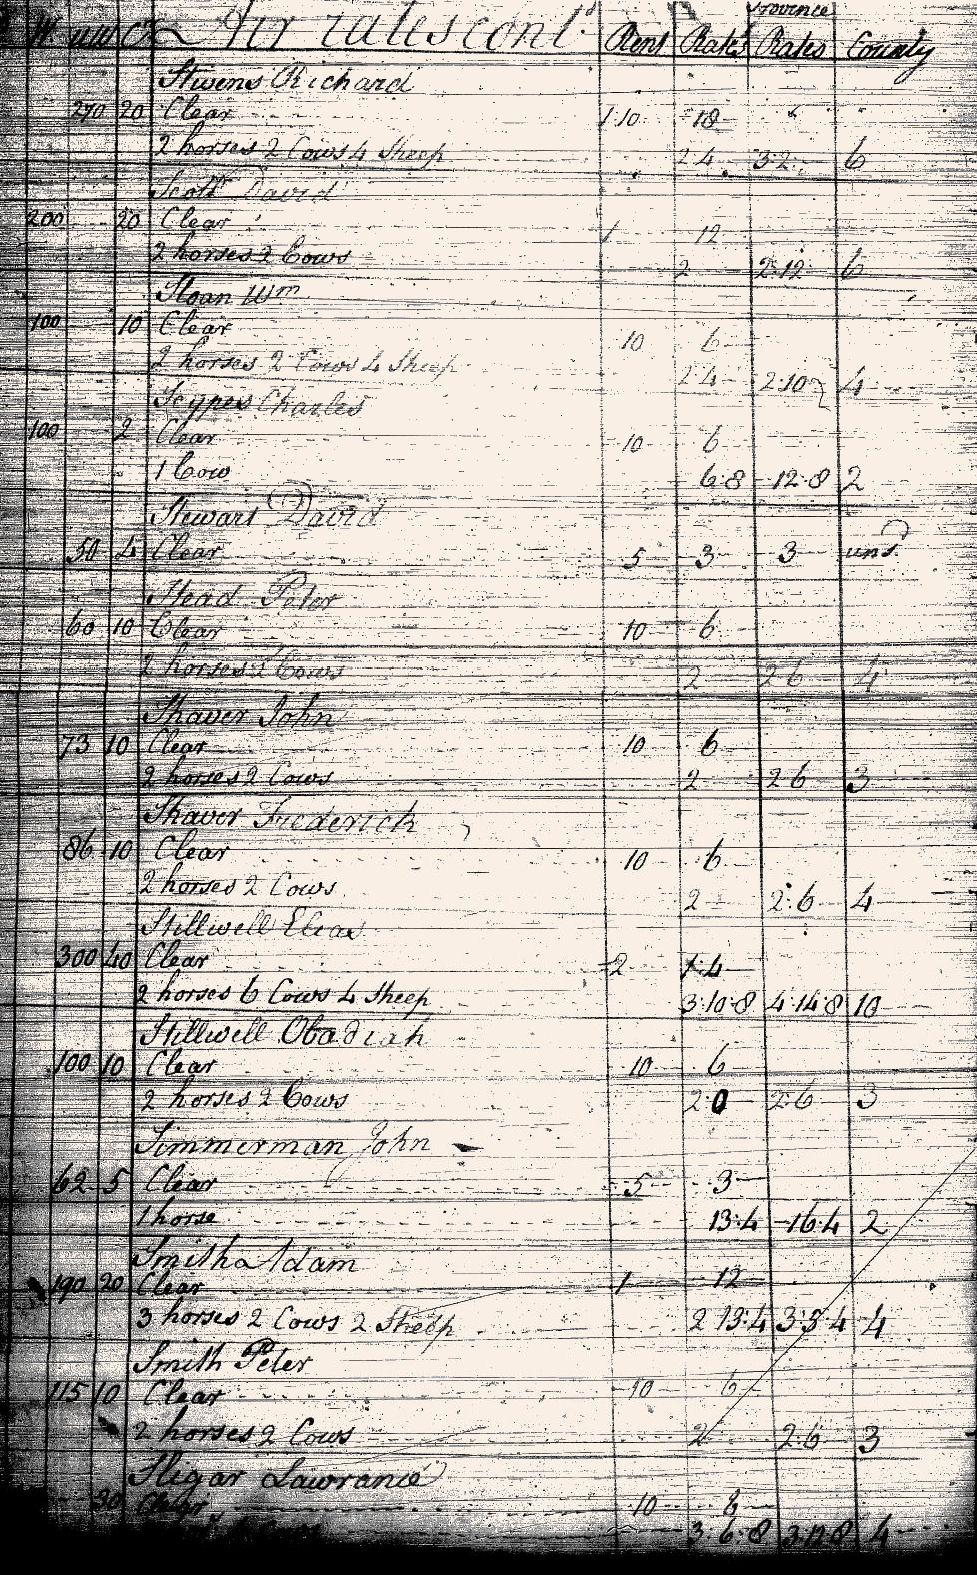 Air rates cont.d Rent Rates Province Rates County
Stivens Richard
270 20 Clear 1 10 18
2 horses 2 Cows 4 Sheep 2 4 3 2 6
Scott David
200 20 Clear 1 12
2 horses 2 Cows 2 2:12 6
Sloan Wm
100 10 Clear 10 6
2 horses 2 Cows 4 Sheep 2 4 2:10 4
Scypes Charles
100 2 Clear 10 6
1 Cow 6:8 12:8 2
Stewart David
50 4 Clear 5 3 3 uns.
Stead Peter
60 10 Clear 10 6
2 horses 2 Cows 2 2 6 4
Shaver John
73 10 Clear 10 6
2 horses 2 Cows 2 2 6 3
Shaver Frederich
86 10 Clear 10 6
2 horses 2 Cows 2 2:6 4
Stillwell Elias
300 40 Clear 2 1:4
2 horses 6 Cows 4 Sheep 3:10:8 4:14:8 10
Stillwell Obadiah
100 10 Clear 10 6
2 horses 2 Cows 2:0 2:6 3
Simmerman John
62 5 Clear 5 3
1 horse 13:4 16:4 2
Smith Adam
190 20 Clear 1 12
3 horses 2 Cows 2 Sheep 2 13:4 3:5 4 4
Smith Peter
115 10 Clear 10 6
2 horses 2 Cows 2 2 6 3
Sligar Lawrance
30 Clear 10 6
Cows 3:6:8 3:12:8 4